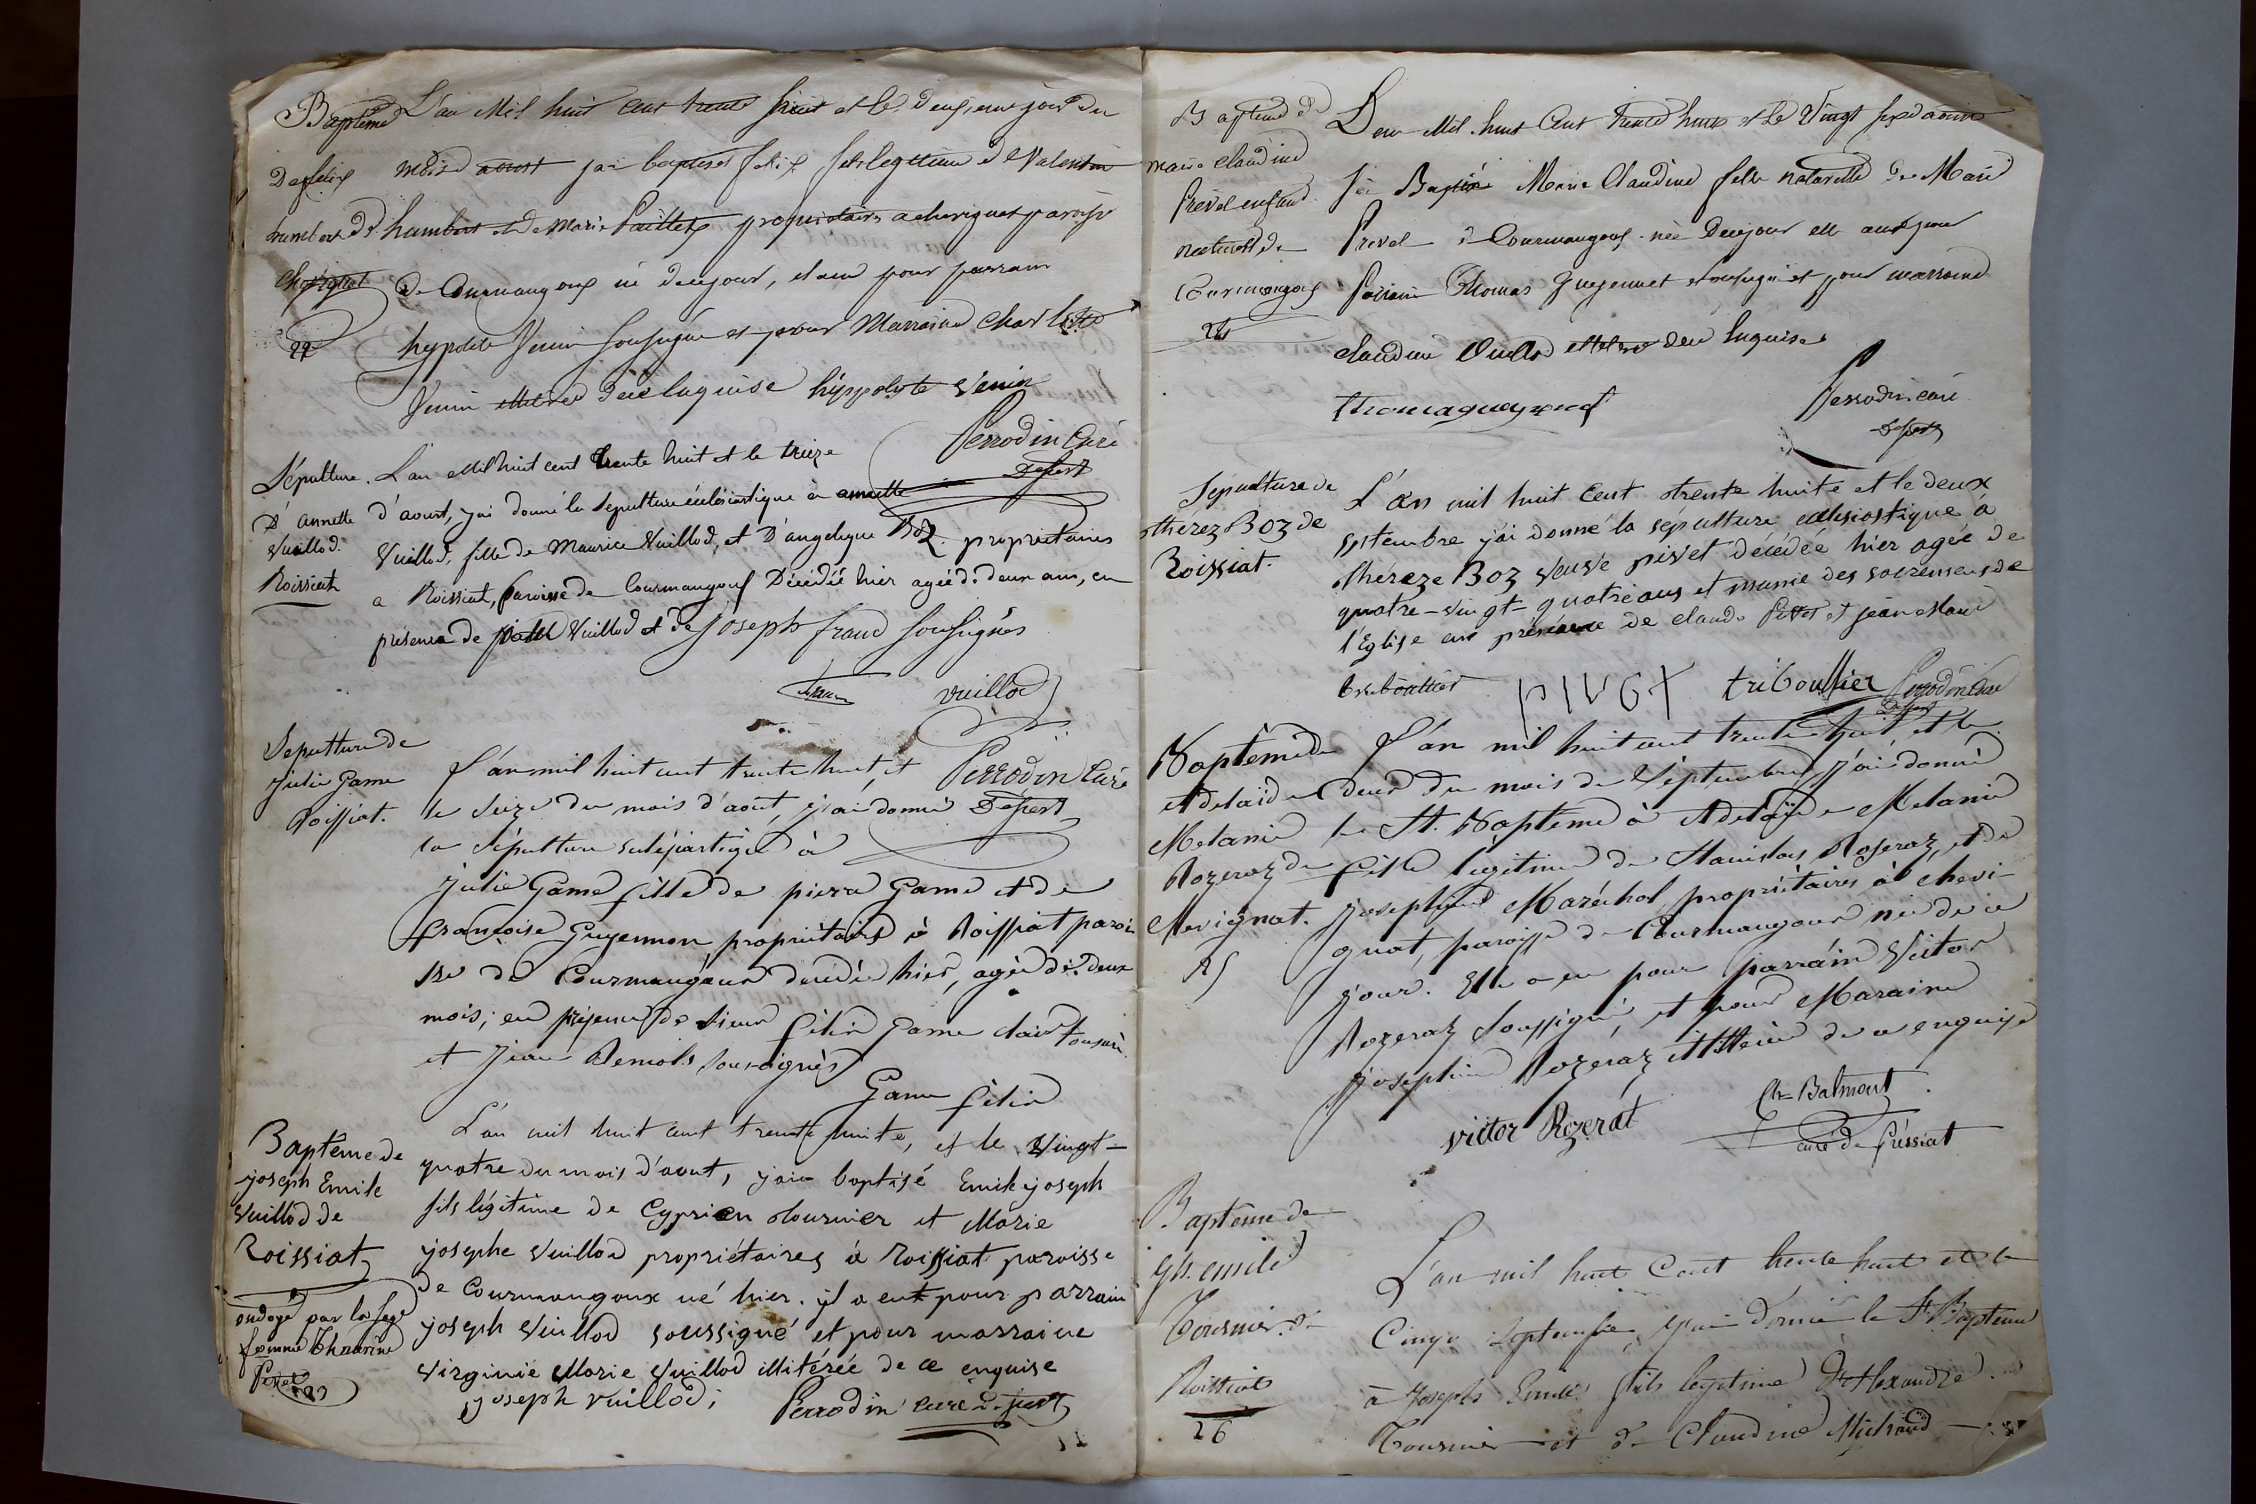 Baptême
De felix
humbert de
Chevignat
22
L'an Mil huit cent trente huit et le deuxieme jour du
mois d aoust jai baptisé felix fils legitime de Valentin
humbert et de Marie Paillet propriétaires a chevignat paroisse
de Courmangoux né de ce jour, il a eu pour parrain
hypolite Venin sousigné et pour Marraine Charlotte
Venin illitéré de ce enquise hippolyte Venin
Perrodin Curé
Desert
Sépulture
D'annette
Vuillod.
Roissiat
L'an Mil huit cent trente huit et le treize
d'aoust, j'ai donné la sepulture écclésiastique à annette
Vuillod, fille de Maurice Vuillod, et D'angelique Boz. propriétaires
a Roissiat, Paroisse de Courmangoux Décédée hier agée de deux ans, en
présence de Vuillod et de joseph fraud sousignés
vuillod
Perrodin Curé
Desert
Sepulture de
Julie Game
Roissiat.
L'an mil huit cent trente huit, et
le seize du mois d'août, j'ai donné
la sépulture eclésiastique à
Julie Game fille de pierre Game et de
françoise Guyennon propriétaires à Roissiat parois-
sse de Courmangoux décédée hier, agée de deux
mois; en présence de sieur félix Game clerc tonsuré
et Jean Demols sousignés
Game félix
Baptême de
joseph Emile
Vuillod de
Roissiat
ondoyé par la sage
femme
L'an mil huit cent trente huite, et le vingt-
quatre du mois d'aout, j'ai baptisé Emile joseph
fils légitime de Cyprien tournier et Marie
josephe Vuillod propriétaires à Roissiat paroisse
de Courmangoux né hier. il a eut pour parrain
joseph Vuillod soussigné et pour marraine
Virginie Marie Vuillod illitérée de ce enquise
joseph vuillod;
Perrodin curé desert
Baptême de
marie claudine
Prevel enfant
naturelle de
Courmangoux
24
L'an Mil huit Cent trente huit et le Vingt six d aoust
j'ai Baptisé Marie Claudine fille naturelle de Marie
Prevel de Courmangoux née de ce jour elle a eut pour
Parrain Thomas Guyennet sousigné et pour marraine
claudine Vuillod illitéré de ce enquise
Perrodin curé
Desert
Sepulture de
thérez Boz de
Roissiat.
L'an mil huit cent trente huite et le deux
septembre j'ai donné la sépulture eclésiastique à
théreze Boz veuve pivet décédée hier agée de
quatre-vingt-quatre ans et munie des sacremens de
l'Eglise en présence de claude Pivet et jean Marie
triboullier
PIVET triboullier Perrodin Curé
Desert
Baptême de
Adelaïde
Melanie
Rozeraz de
Chevignat.
25
L'an mil huit cent trente huit et le
deux du mois de Septembre, j'ai donné
le St. Baptême à Adelaïde Melanie
fille légitime de Stanislas Roseraz, et de
Josephine Maréchal, propriétaires à Chevi-
gnat, paroisse de Courmangoux née de ce
jour. Elle a eu pour parrain Victor
Rozeraz Soussigné, et pour Maraine
Josephine Rozéraz illitérée de ce enquise
victor Rozerat
Ch. Balmont
curé de Préssiat
Baptême de
Jh. emile
Tournier de
Roissiat
26
L'an mil huit Cent trente huit et le
Cinq septembre, j'ai donné le St. Baptême
à Joseph Emile fils legitime d'Alexandre
Tournier et de Claudine Michaud